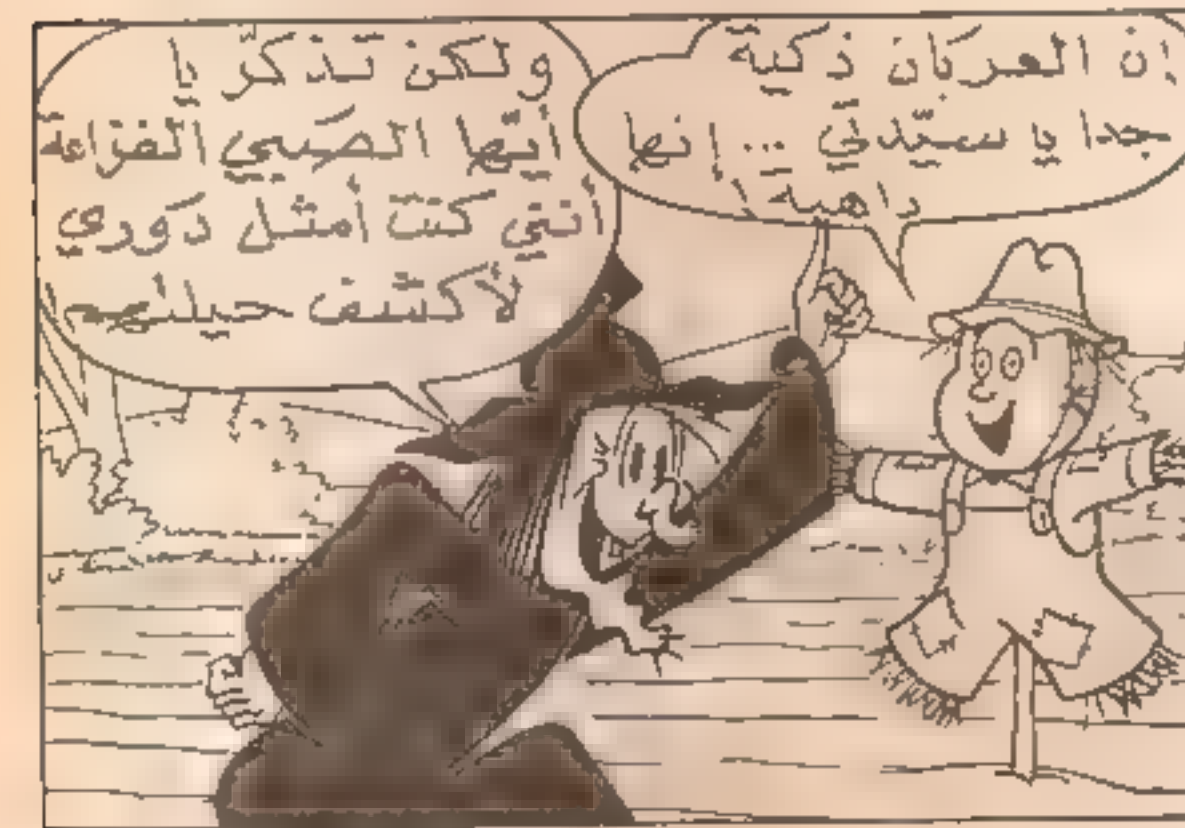 إن الغربان ذكية
جدا يا سيّدتي ... إنها
داهية!
ولكن تذكرّ يا
أيّها الصَبي الفزاعة
أنني كنت أمثل دَوري
لأكشف حيلتهم